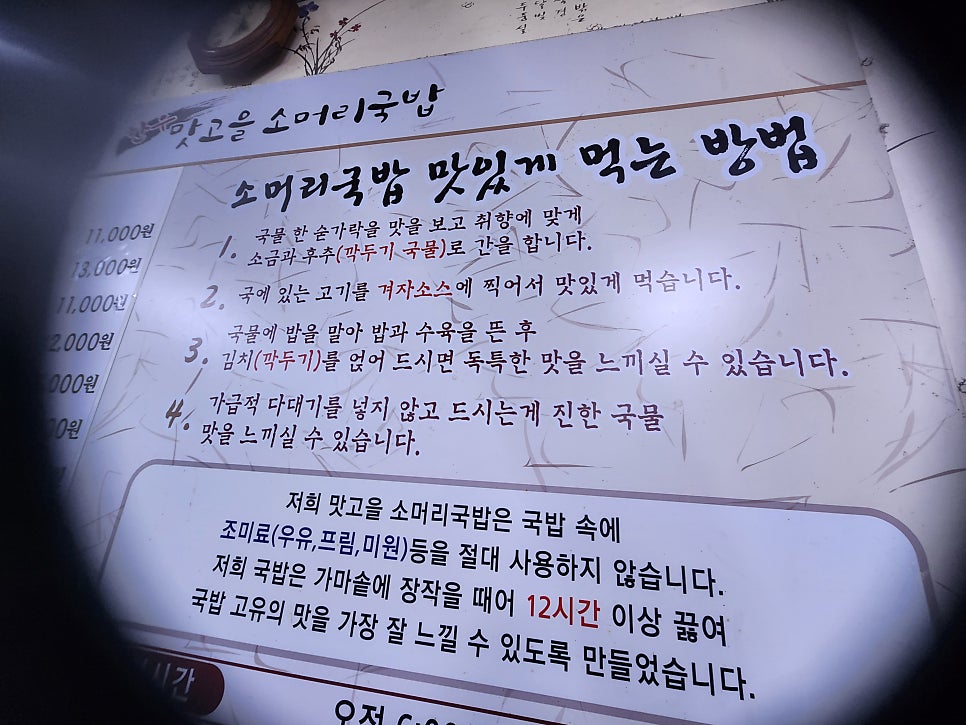 맛고을 소머리국밥
소머리국밥 맛있게 먹는 방법
11,000원
13,000원
11,000원
2,000원
000원
00원
1. 국물 한 숟가락을 맛을 보고 취향에 맞게
소금과 후추(깍두기 국물)로 간을 합니다.
2. 국에 있는 고기를 겨자소스에 찍어서 맛있게 먹습니다.
3. 국물에 밥을 말아 밥과 수육을 뜬 후
김치(깍두기)를 얹어 드시면 독특한 맛을 느끼실 수 있습니다.
4. 가급적 다대기를 넣지 않고 드시는게 진한 국물
맛을 느끼실 수 있습니다.
저희 맛고을 소머리국밥은 국밥 속에
조미료(우유,프림,미원)등을 절대 사용하지 않습니다.
저희 국밥은 가마솥에 장작을 때어 12시간 이상 끓여
국밥 고유의 맛을 가장 잘 느낄 수 있도록 만들었습니다.
시간
오전